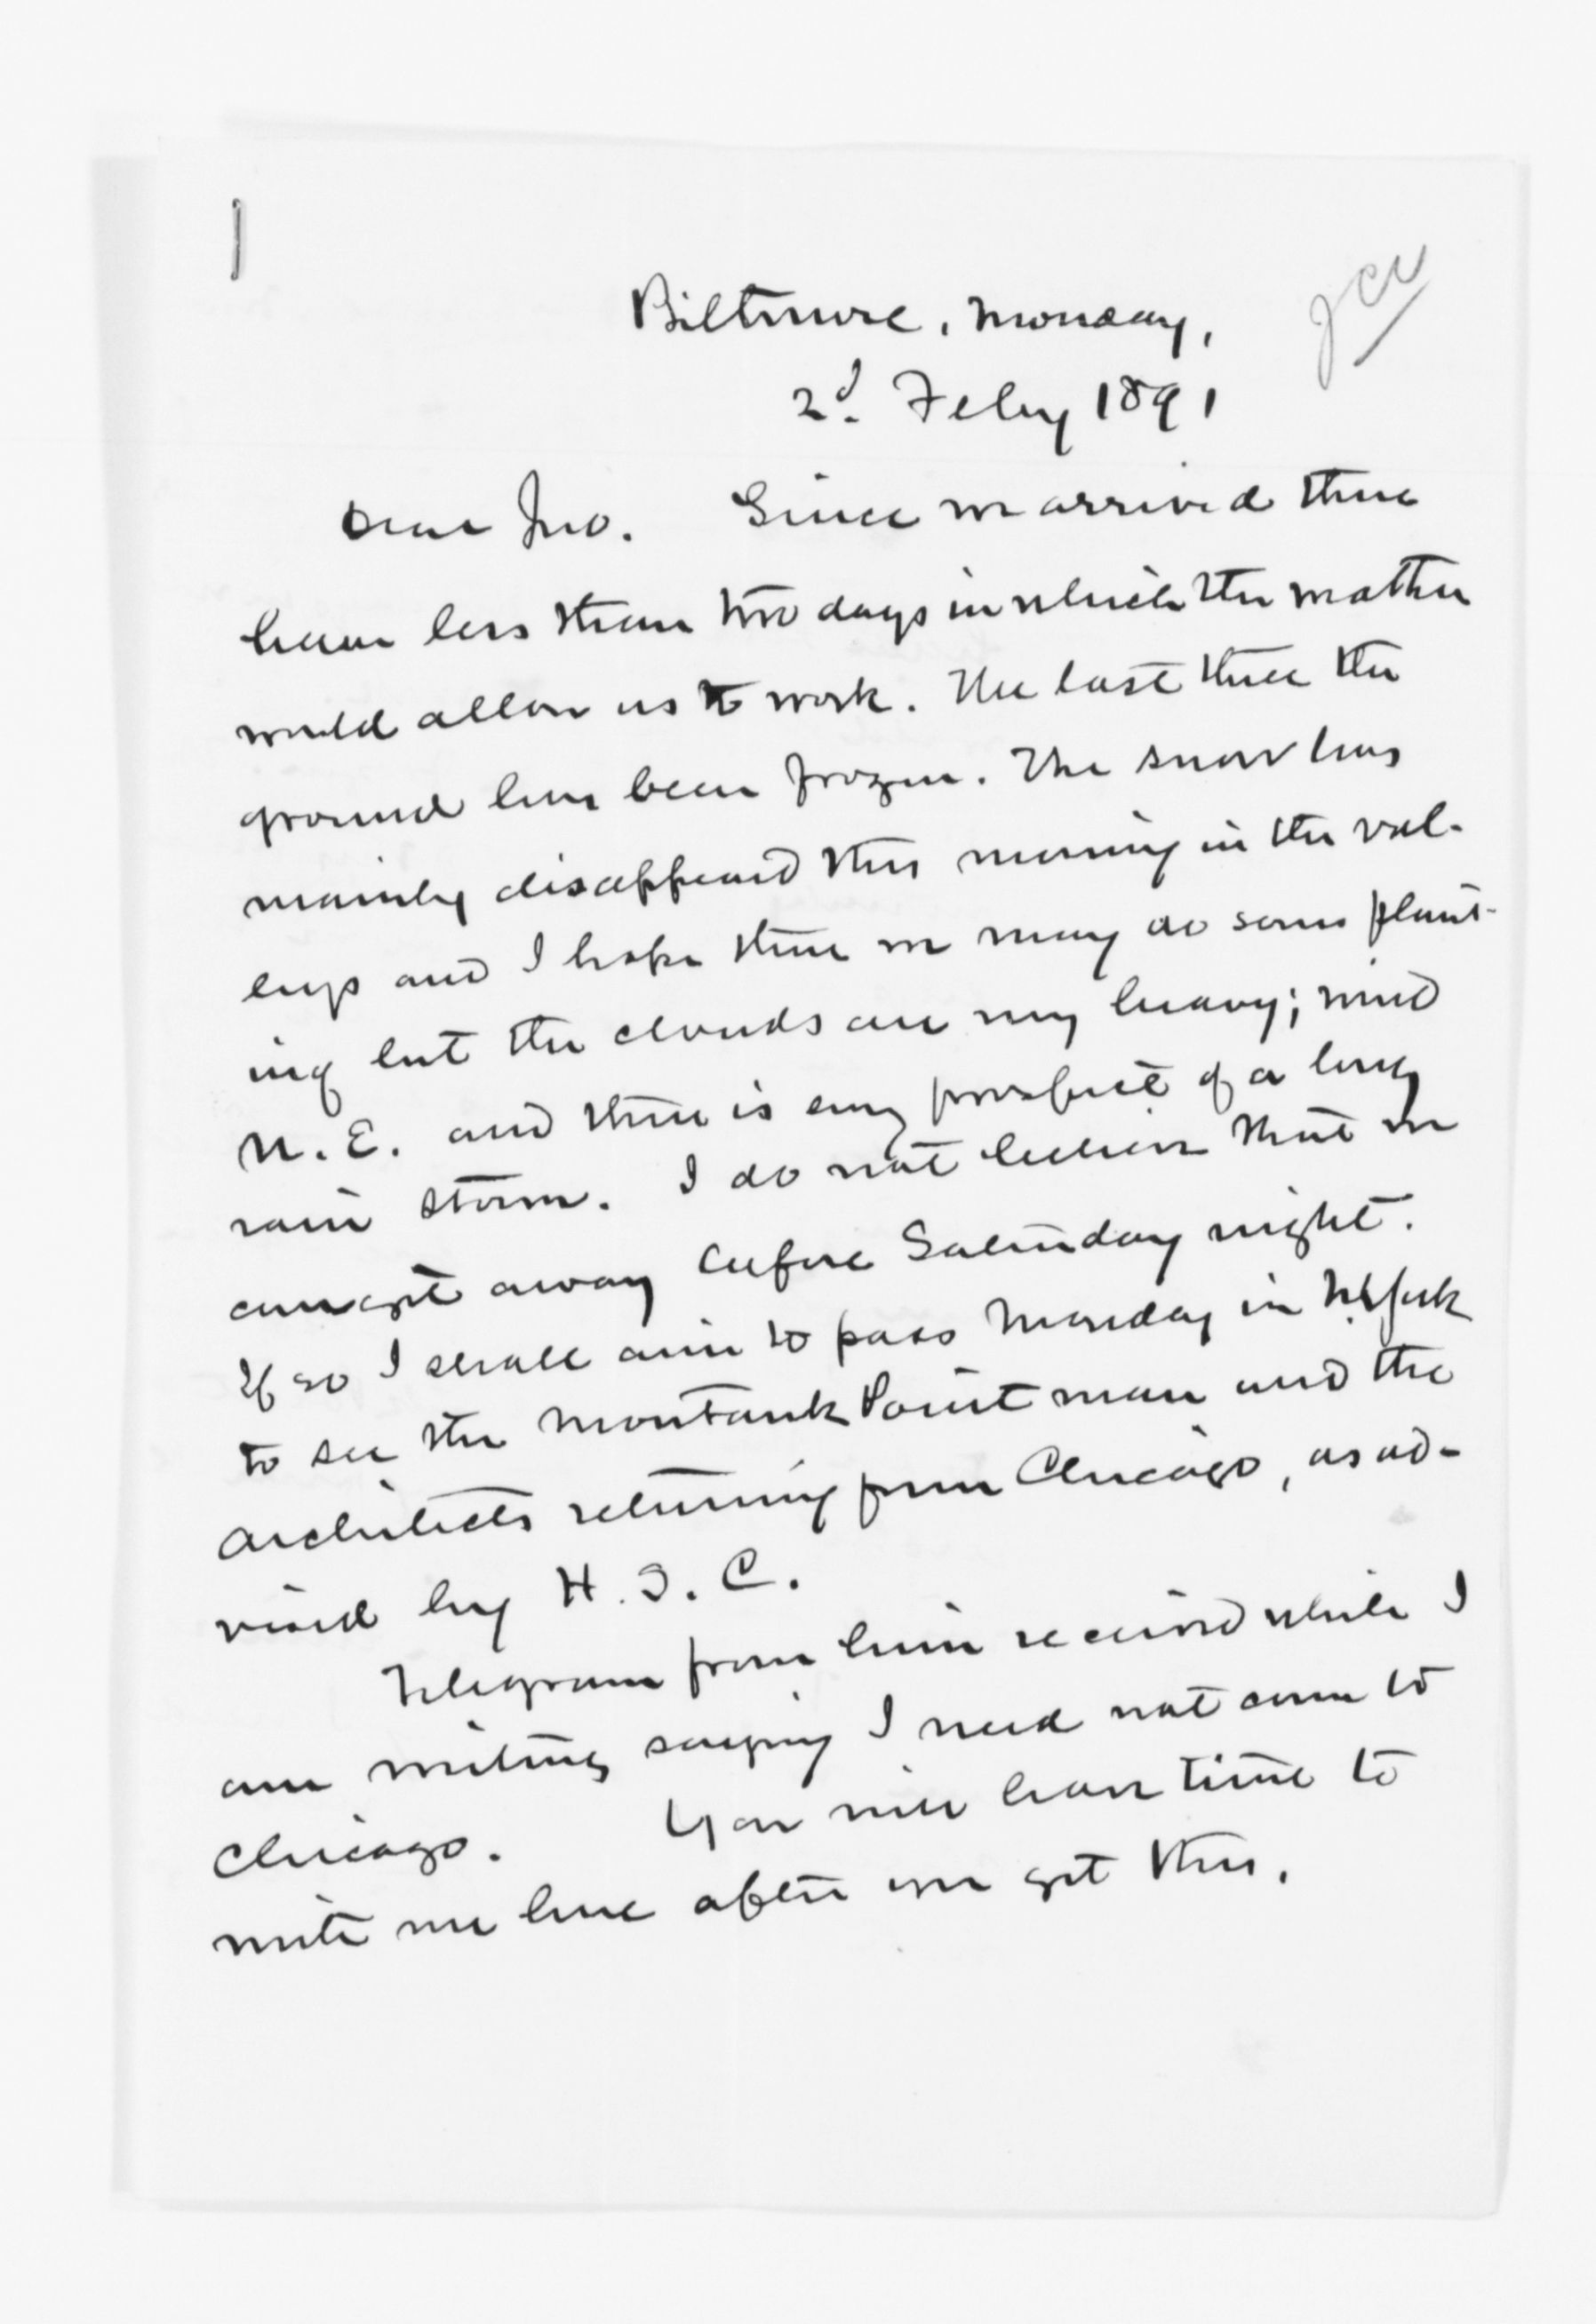 Biltmore, Monday,
2d. Feby 1891
Dear Jno. Since we arrived there
have less than two days in which the weather
would allow us to work. The last three the
ground has been frozen. The snow has
mainly disappeard this morning in the val-
leys and I hope there we may do some plant-
ing but the clouds are very heavy; wind
N. E. and there is every prospect of a long
rain storm. I do not believe that we
can get away before Saturday night.
If so I shall aim to pass Monday in
to see the Montauk Point man and the
architects returning from Chicago, as ad-
vised by H. S. C.
Telegram from him received while I
am writing saying I need not come to
Chicago. You will have time to
write me here after you get this.